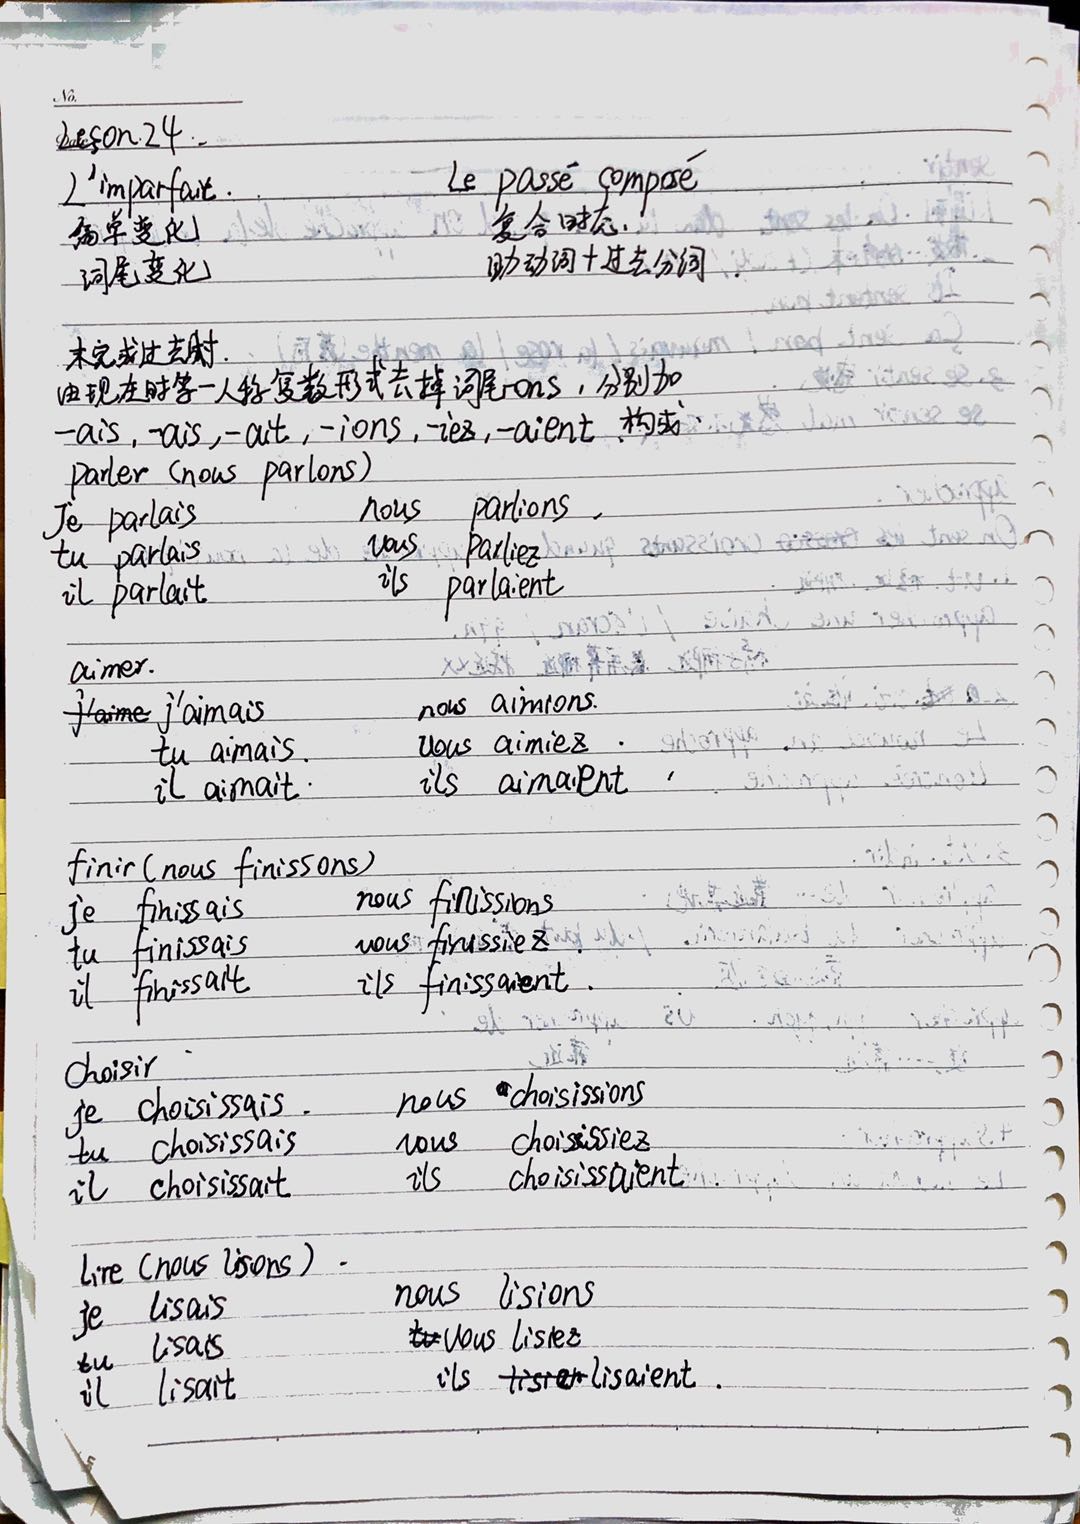 No.
Lesson.24.
L'imparfait. Le passé composé
简单变化 复合时态.
词尾变化 助动词+过去分词.
未完成过去时.
由现在时第一人称复数形式去掉词尾-ons,分别加
-ais,-ais,-ait,-ions,-iez,-aient 构成
parler (nous parlons)
Je parlais nous parlions
tu parlais vous parliez
il parlait ils parlaient
aimer.
j'aime j'aimais nous aimions.
tu aimais. vous aimiez.
il aimait. ils aimaient
finir (nous finissons)
je finissais nous finissions
tu finissais vous finissiez
il finissait ils finissaient.
choisir
je choisissais. nous choisissions
tu choisissais vous choisissiez
il choisissait ils choisissaient
lire (nous lisons).
je lisais nous lisions
tu lisais tu vous lisiez
il lisait ils lisaient.